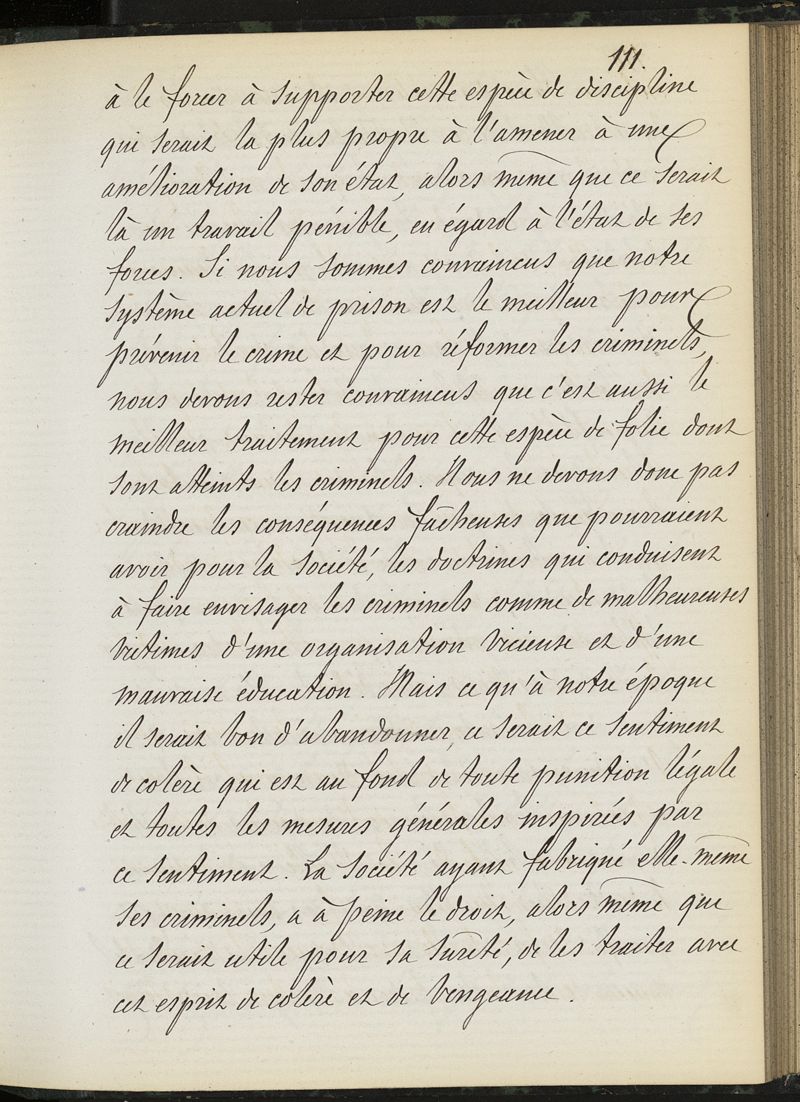 111.
à le forcer à supporter cette espèce de discipline
qui serait la plus propre à l'amener à une
amélioration de son état, alors même que ce serait
là un travail pénible, eu égard à l'état de ses
forces. Si nous sommes convaincus que notre
système actuel de prison est le meilleur pour
prévenir le crime et pour réformer les criminels,
nous devons rester convaincus que c'est aussi le
meilleur traitement pour cette espèce de folie dont
sont atteints les criminels. Nous ne devons donc pas
craindre les conséquences fâcheuses que pourraient
avoir pour la société, les doctrines qui conduisent
à faire envisager les criminels comme de malheureuses
victimes d'une organisation vicieuse et d'une
mauvaise éducation. Mais ce qu'à notre époque
il serait bon d'abandonner, ce serait ce sentiment
de colère qui est au fond de toute punition légale
et toutes les mesures générales inspirées par
ce sentiment. La société ayant fabriqué elle-même
ses criminels, a à peine le droit, alors même que
ce serait utile pour sa sûreté, de les traiter avec
cet esprit de colère et de vengeance.